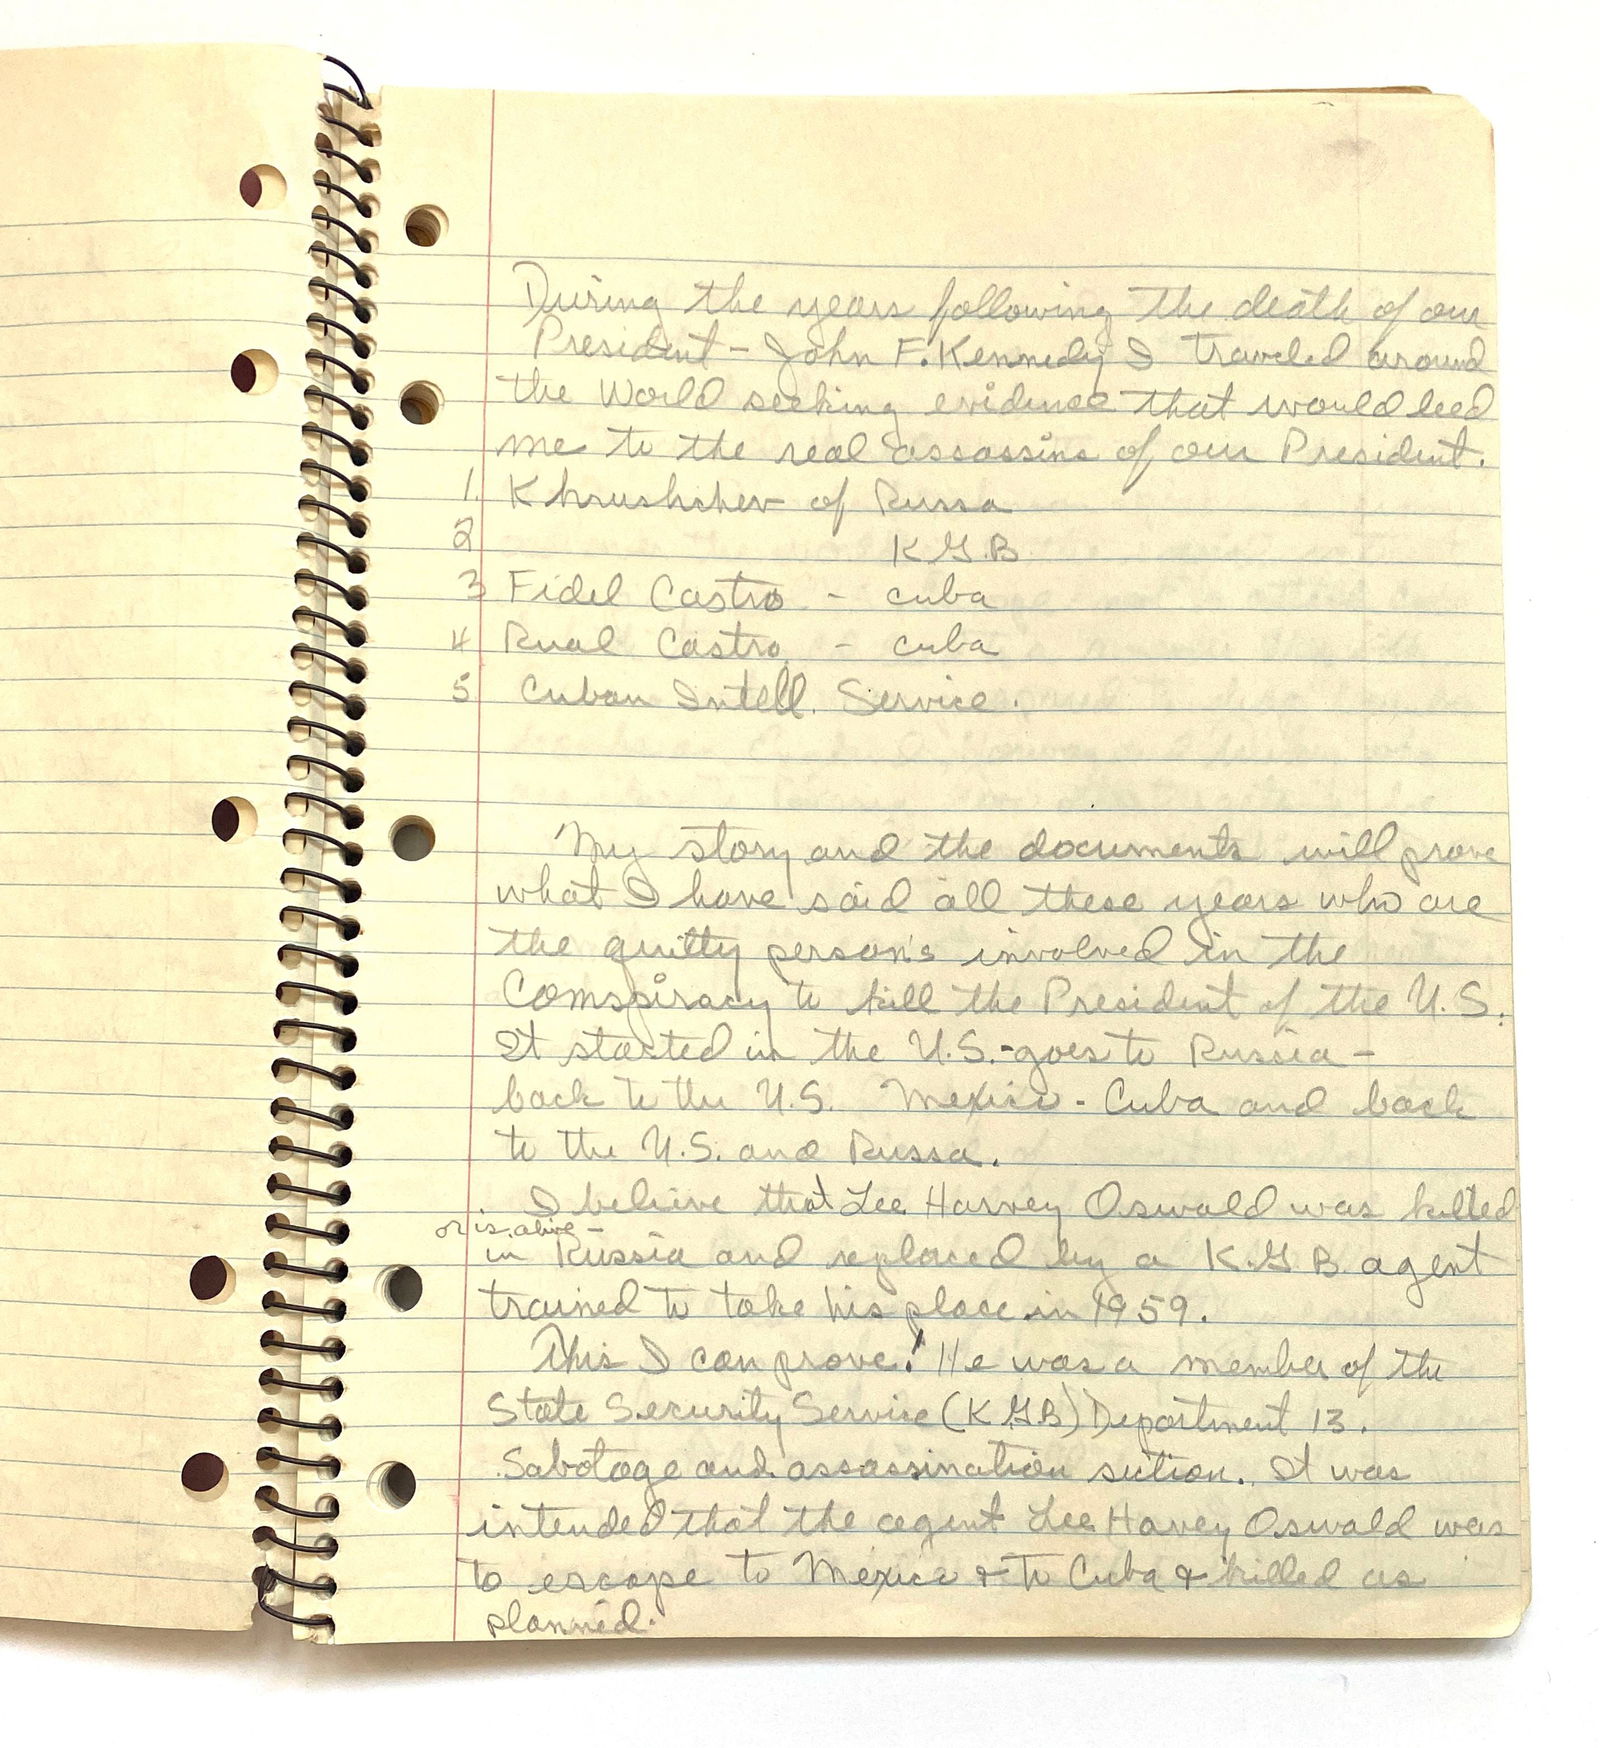 During the years following the death of our
President - John F. Kennedy I traveled around
the World seeking evidence that would leed
me to the real assassins of our President.
1. Khrushchev of Russa
2 K.G.B.
3 Fidel Castro - cuba
4 Rual Castro - cuba
5. Cuban Intell. Service.
My story and the documents will prove
what I have said all these years who are
the guilty person's involved in the
Comspiracy to kill the President of the U.S.
It started in the U.S. - goes to Russia -
back to the U.S. Mexico - Cuba and back
to the U.S. and Russa.
I believe that Lee Harvey Oswald was killed
or is alive -
in Russia and replaced by a K.G.B. agent
trained to take his place in 1959.
This I can prove! He was a member of the
State Security Service (K.G.B) Department 13.
Sabotage and assassination section. It was
intended that the agent Lee Harvey Oswald was
to escape to Mexico & to Cuba & killed as
planned.